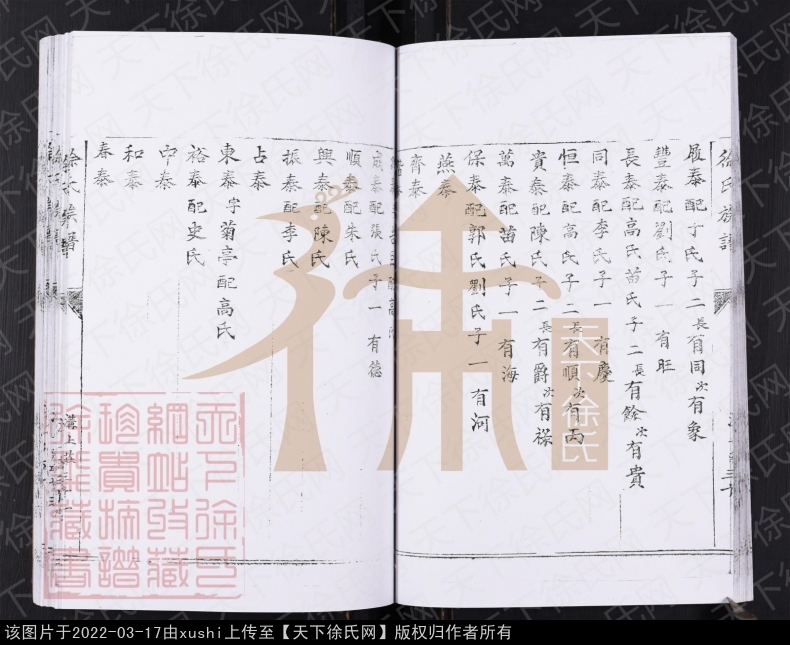 徐氏族譜
履泰配于氏子二長有同次有象
豐泰配劉氏子一有旺
長泰配高氏苗氏子二長有餘次有貴
同泰配李氏子一有慶
恒泰配高氏子二長有順次有丙
貴泰配陳氏子二長有爵次有祿
萬泰配苗氏子一有海
保泰配郭氏劉氏子一有河
燕泰
齊泰
成泰配張氏子一有德
順泰配朱氏
興泰配陳氏
振泰配李氏
占泰
東泰字菊亭配高氏
裕泰配史氏
中泰
和泰
春泰
徐氏族譜
天下徐氏
天下徐氏
網站收藏
珍貴族譜
徐雅藏書
该图片于2022-03-17由xushi上传至【天下徐氏网】版权归作者所有